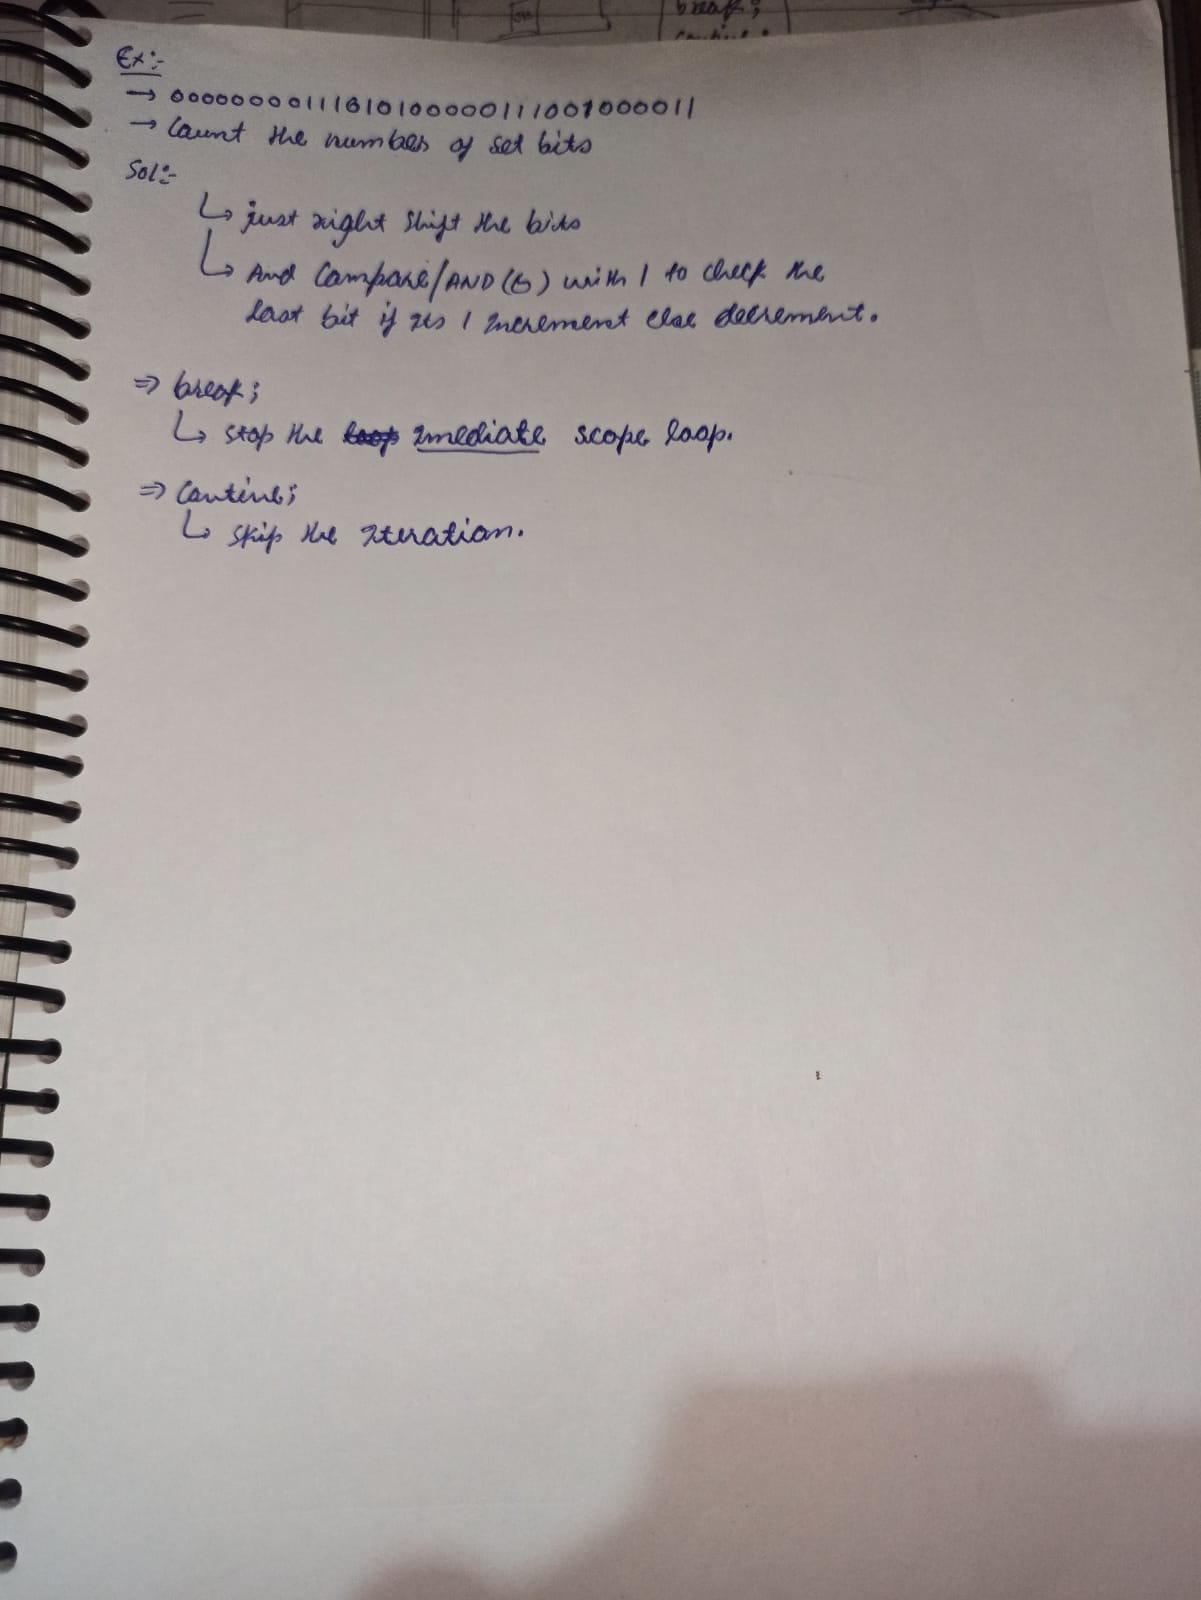 break;
Ex:-
→ 00000000111010100000111001000011
→ Count the number of set bits
Sol:-
↳ just right shift the bits
↳ And Compare/AND(&) with 1 to check the
last bit if its 1 increment else decrement.
⇒ break;
↳ stop the loop Imediate scope loop.
⇒ Contine;
↳ skip the iteration.